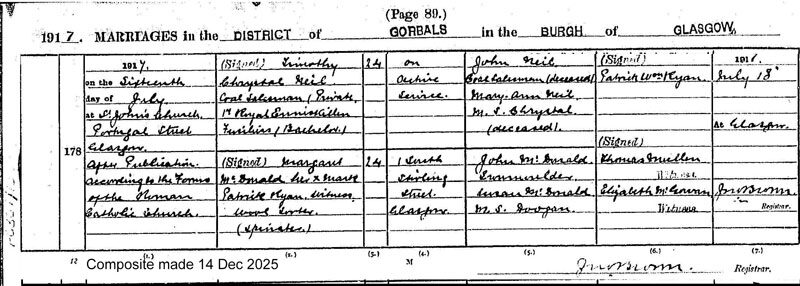 (Page 89.)
1917. MARRIAGES in the DISTRICT of GORBALS in the BURGH of GLASGOW
178
1917,
on the Sixteenth
day of July
at St John's Church
Portugal Street
Glasgow
After Publication
according to the Forms
of the Roman
Catholic Church
(1.)
(Signed) Timothy
Chrystal Neil
Coal Salesman, (Private
1st Royal Enniskillen
Fusiliers) (Bachelor)
(Signed) Margaret
McDonald her x mark
Patrick Ryan, Witness
Wool Sorter
(Spinster)
(2.)
24
24
(3.)
on
Active
Service
1 South
Stirling
Street
Glasgow
(4.)
John Neil
Coal Salesman (deceased)
Mary Ann Neil
M. S. Chrystal
(deceased)
John McDonald
Ironmoulder
Susan McDonald
M. S. Doogan
(5.)
(Signed)
Patrick Wm Ryan.
(Signed)
Thomas Mullen
Witness
Elizabeth McGowan
Witness
(6.)
July 18
At Glasgow
Jno Brown
Registrar.
(7.)
12 Composite made 14 Dec 2025 M Jno Brown. Registrar.